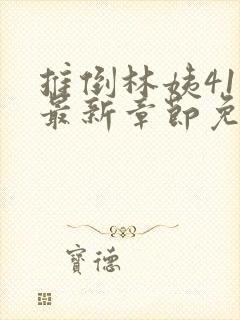 推倒林姨41
最新章节免
寶德